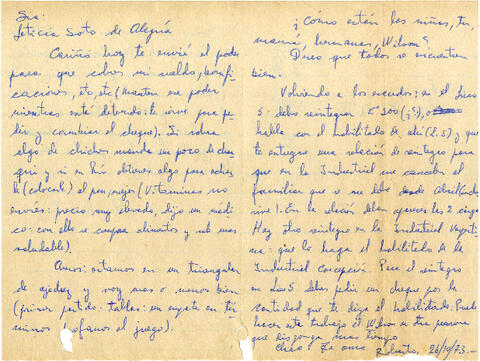 Sra:
Leticia Soto de Alegría
Cariño: hoy te envié el poder
para que cobres mi sueldo, bonifi
caciones, etc, etc (manten ese poder
mientras esté detenido: te sirve para pe
dir y cambiar el cheque). Si sobra
algo de chichos manda un poco de cha
qui y si en obtienes algo para echar
le (colocarle) al pan, mejor (Vitaminas no
envíes: precio muy elevado, dijo un médi
co: con ella se compra alimentos y más
saludable).
Amor: estamos en un triangular
de ajedrez y voy mas o menos bien
(primer partido: tablas: un empate en tér
minos profanos al juego).
¿Cómo están las niñas, tu,
mamá, hermanas, Wilson?
Deseo que todos se encuentren
bien.
Volviendo a los escudos: en el Liceo
5 debo reintegrar Eº 200 (¿?),
habla con el habilitado de allí (L. 5) y que
te entregue una relación de reintegro para
que en la Industrial me cancelen el
familiar que se me debe desde Abril (inclu
sive). En la relación deben aparecer las 2 cargas
Hay otro reintegro en la Industrial
na: que lo haga el habilitado de la
Industrial Concepción. Para el reintegro
en Liceo 5 debes pedir un cheque por la
cantidad que te diga el habilitado. Puede
hacer este trabajo el Wilson u otra persona
que disponga mas tiempo
Chao! Te ama Roberto. 26/10/73.-